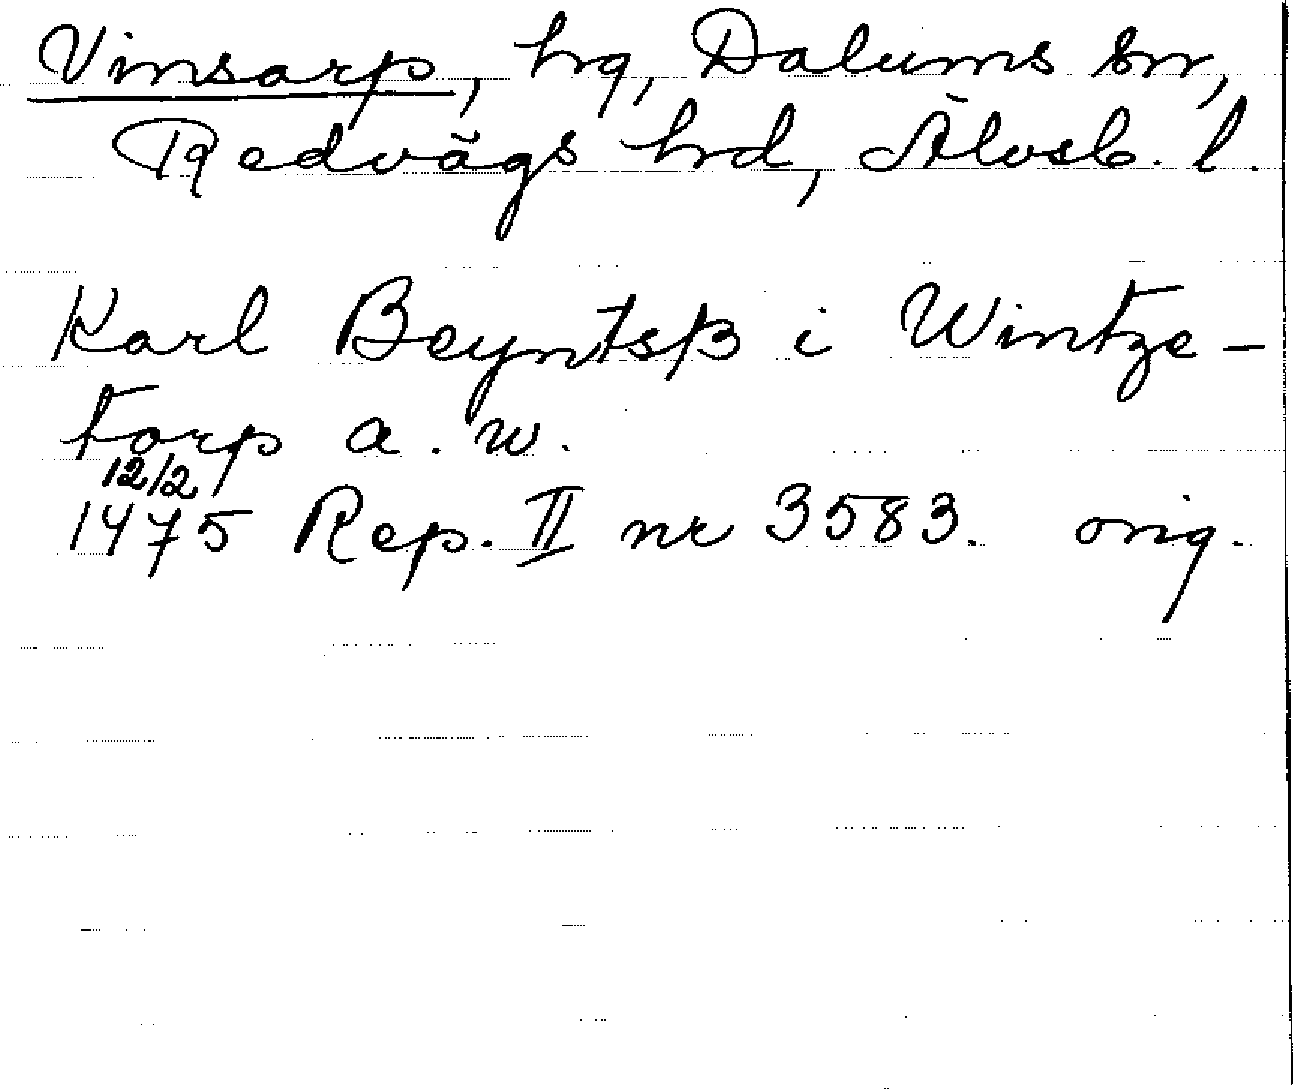 Vinsarp, hg, Dalums sn,
Redvägs hd, Älvsb. l.
Karl Beyntsß i Wintze-
torp a. w.
12/2
1475 Rep. II nr 3583. orig.